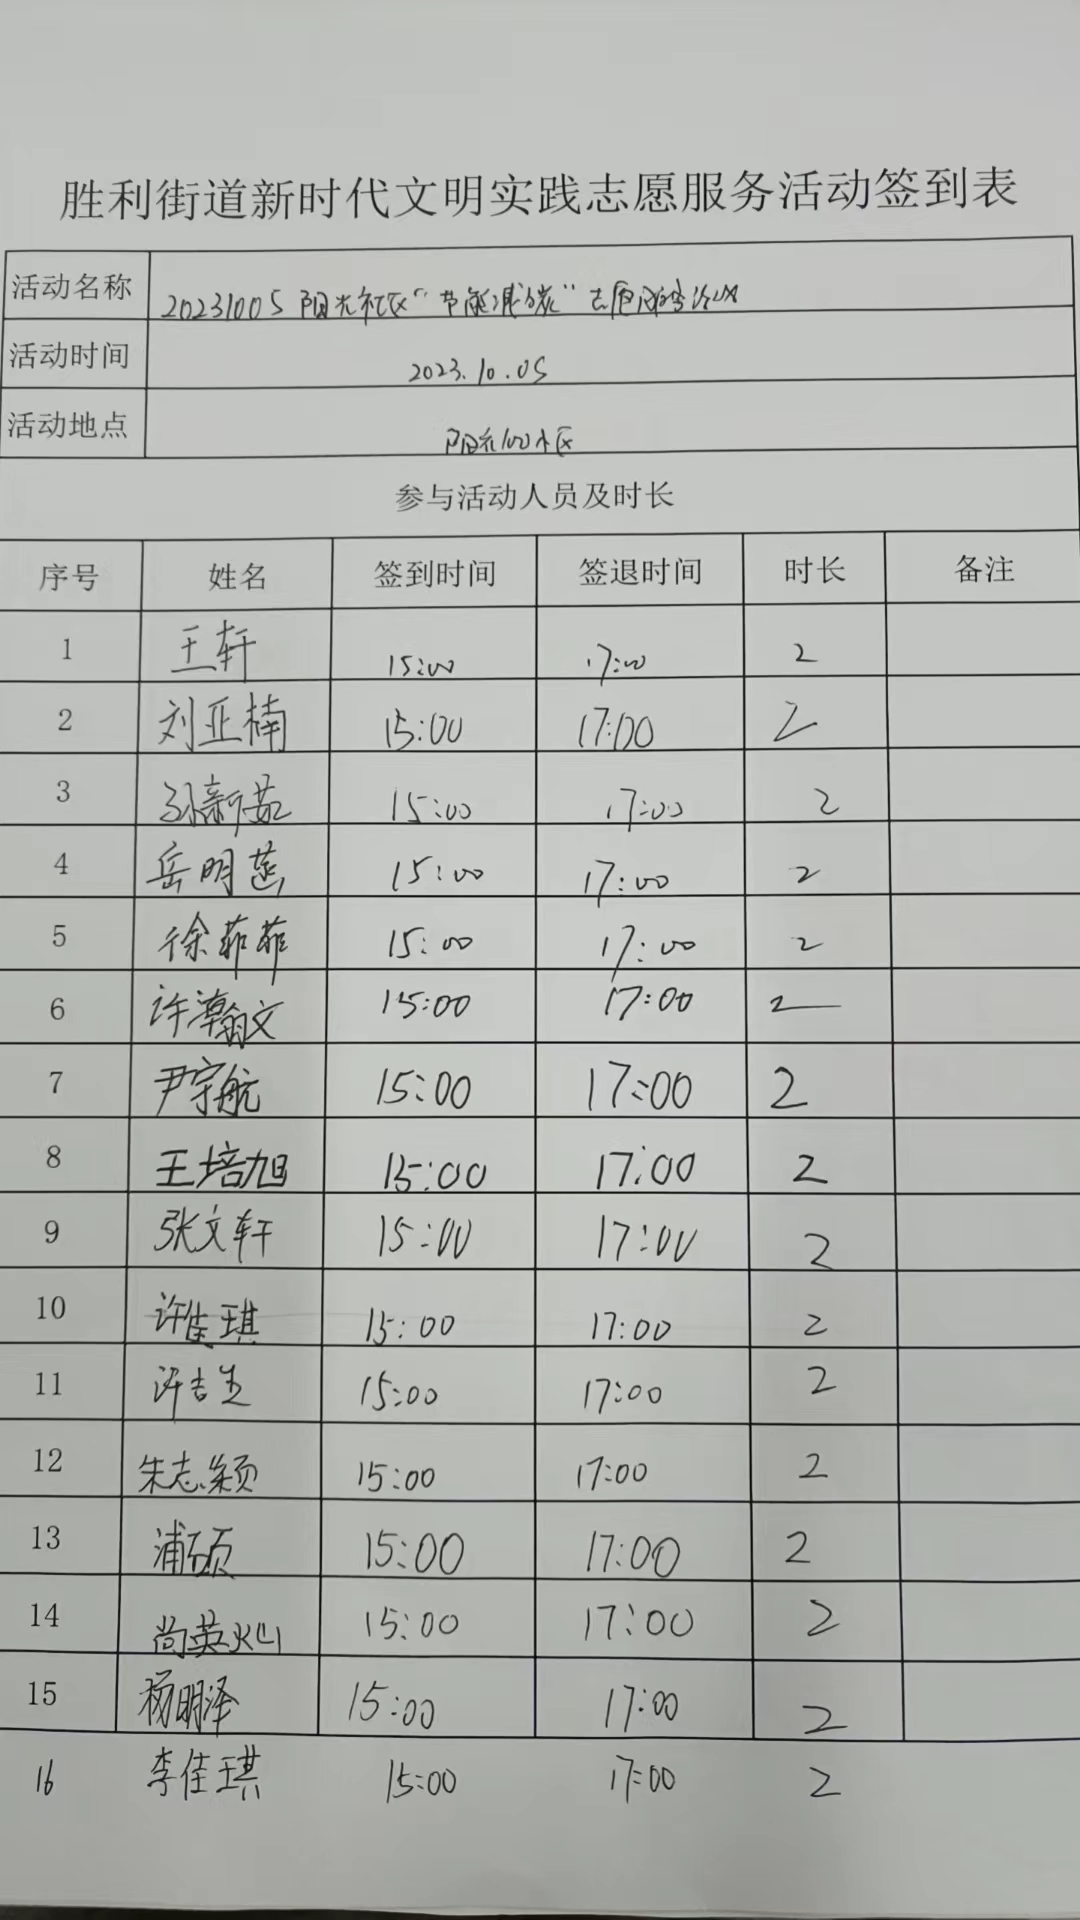 胜利街道新时代文明实践志愿服务活动签到表
活动名称 20231005 阳光社区“节能减碳”志愿服务活动
活动时间 2023.10.05
活动地点 阳光100小区
参与活动人员及时长
序号 姓名 签到时间 签退时间 时长 备注
1 王轩 15:00 17:00 2
2 刘亚楠 15:00 17:00 2
3 孙新茹 15:00 17:00 2
4 岳明 15:00 17:00 2
5 徐菲菲 15:00 17:00 2
6 许瀚文 15:00 17:00 2
7 尹宗航 15:00 17:00 2
8 王培旭 15:00 17:00 2
9 张文轩 15:00 17:00 2
10 许佳琪 15:00 17:00 2
11 许吉生 15:00 17:00 2
12 朱志颖 15:00 17:00 2
13 浦硕 15:00 17:00 2
14 尚英灿 15:00 17:00 2
15 杨明泽 15:00 17:00 2
16 李佳琪 15:00 17:00 2